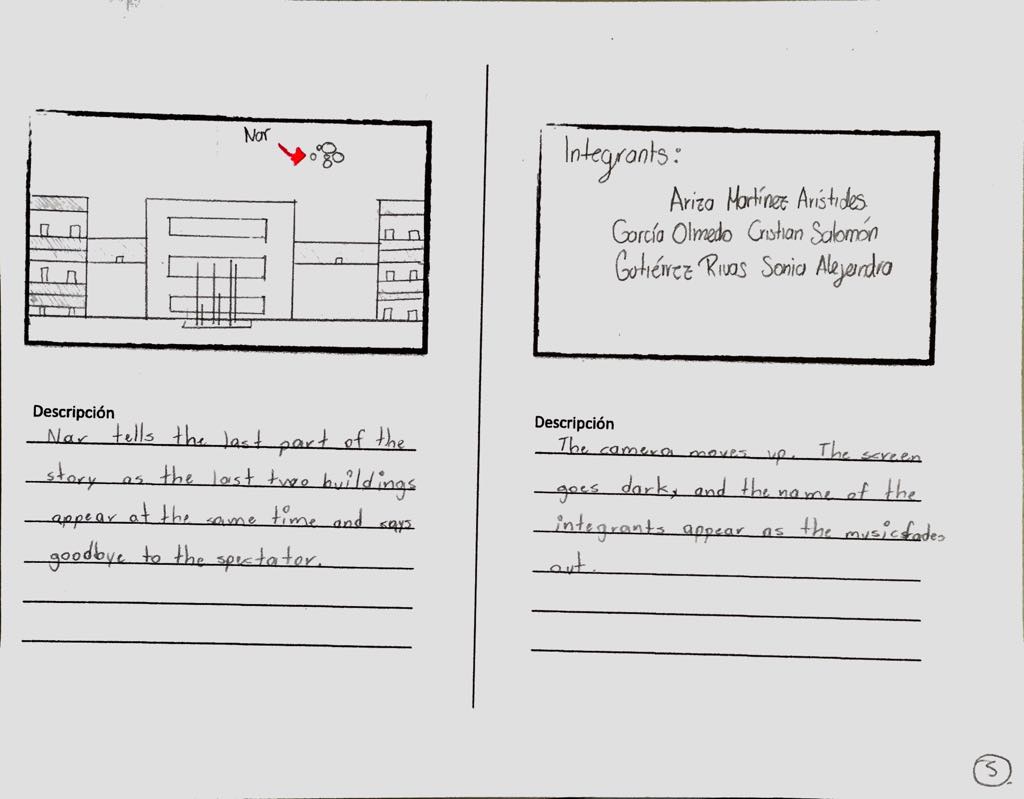 Nar
Descripción
Nar tells the last part of the
story as the last two buildings
appear at the same time and says
goodbye to the spectator.
Integrants:
Ariza Martínez Arístides
García Olmedo Cristian Salomón
Gutiérrez Rivas Sonia Alejandra
Descripción
The camera moves up. The screen
goes dark, and the name of the
integrants appear as the music fades
out.
5